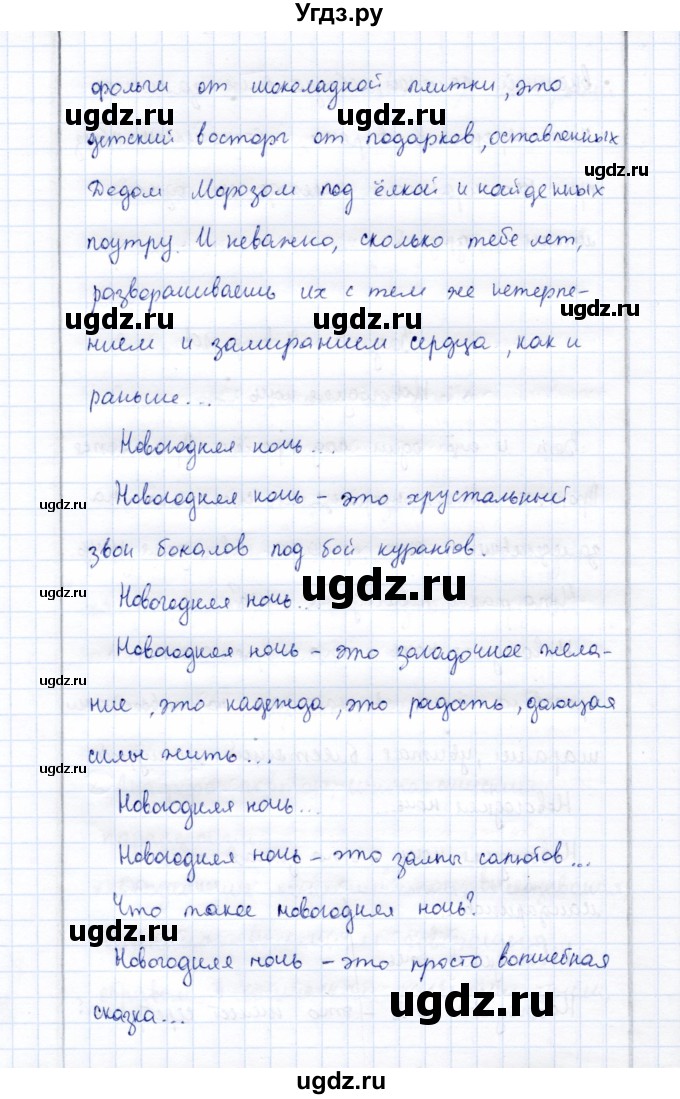 Угдз.ру
фольги от шоколадной плитки, это
ugdz.ru ugdz.ru
детский восторг от подарков, оставленных
ugdz.ru
Дедом Морозом под ёлкой и найденных
поутру. И неважно, сколько тебе лет,
разворашиваешь их с тем же нетерпе-
ugdz.ru ugdz.ru ugdz.ru
нием и замиранием сердца, как и
раньше...
Новогодняя ночь...
Новогодняя ночь - это хрустальный
ugdz.ru
звон бокалов под бой курантов.
ugdz.ru ugdz.ru
Новогодняя ночь...
Новогодняя ночь - это загадочное жела-
ugdz.ru
ние, это надежда, это радость, дающая
силы жить...
ugdz.ru
Новогодняя ночь...
Новогодняя ночь - это залпы салютов...
Что такое новогодняя ночь?
ugdz.ru
Новогодняя ночь - это просто волшебная
ugdz.ru
сказка...
ugdz.ru